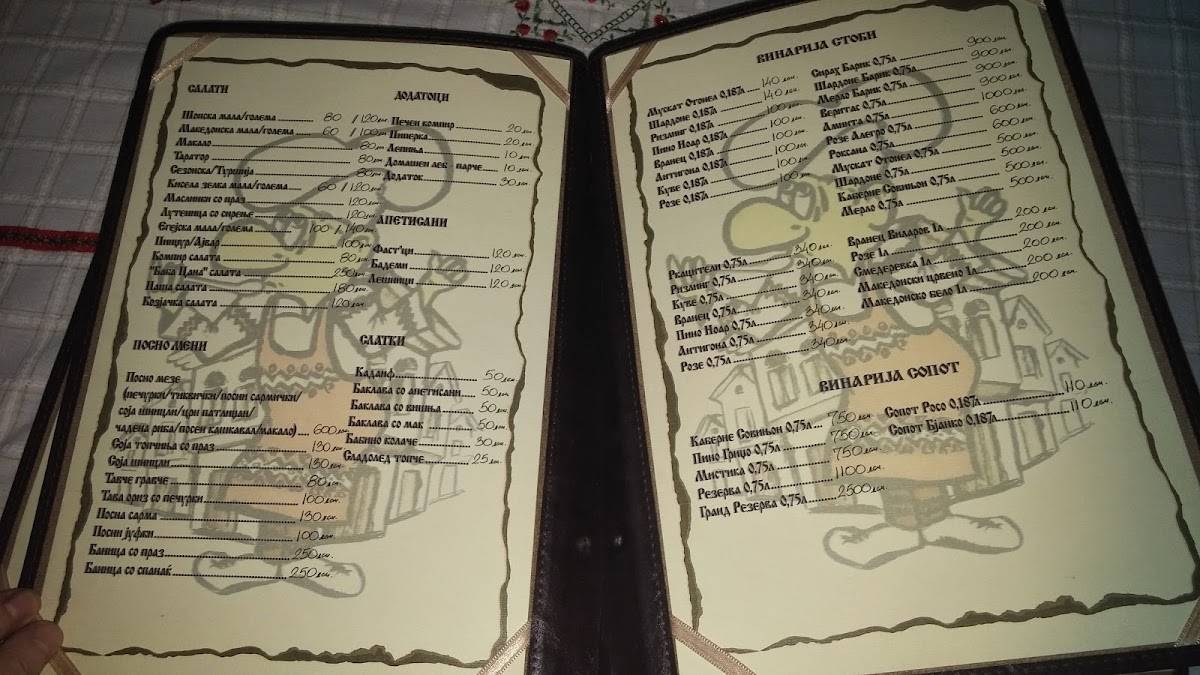 САЛАТИ
Шопска мала/голема 80 /120 ден
Македонска мала/голема 60 /100 ден
Макало 80 ден
Таратор 80 ден
Сезонска/Туршија 80 ден
Кисела зелка мала/голема 60 /120 ден
Маслинки со праз 120 ден
Лутеница со сирење 120 ден
Егејска мала/голема 100 / 140 ден
Пинџур/Ајвар 100 ден
Компир салата 80 ден
"Баба Цана" салата 250 ден
Паша салата 180 ден
Козјачка салата 120 ден
ДОДАТОЦИ
Печен компир 20 ден
Пиперка 20 ден
Лепиња 10 ден
Домашен леб - парче 10 ден
Додаток 30 ден
АПЕТИСАНИ
Фаст'ци 120 ден
Бадеми 120 ден
Лешници 120 ден
ПОСНО МЕНИ
Посно мезе
(печурки/тиквички/посни сармички/
соја шницли/црн патлиџан/
чадена риба/посен кашкавал/макало) 600 ден
Соја топчиња со праз 130 ден
Соја шницли 130 ден
Тавче гравче 80 ден
Тава ориз со печурки 100 ден
Посна сарма 130 ден
Посни јуфки 100 ден
Баница со праз 250 ден
Баница со спанаќ 250 ден
СЛАТКИ
Кадаиф 50 ден
Баклава со апетисани 50 ден
Баклава со вишња 50 ден
Баклава со мак 50 ден
Бабино колаче 30 ден
Сладолед топче 25 ден
ВИНАРИЈА СТОБИ
Мускат Отонел 0,187л 140 ден
Шардоне 0,187л 140 ден
Ризлинг 0,187л 100 ден
Пино Ноар 0,187л 100 ден
Вранец 0,187л 100 ден
Антигона 0,187л 100 ден
Куве 0,187л 100 ден
Розе 0,187л
Сирах Барик 0,75л 900 ден
Шардоне Барик 0,75л 900 ден
Мерло Барик 0,75л 900 ден
Веритас 0,75л 900 ден
Аминта 0,75л 1000 ден
Розе Алегро 0,75л 600 ден
Роксана 0,75л 600 ден
Мускат Отонел 0,75л 500 ден
Шардоне 0,75л 500 ден
Каберне Совињон 0,75л 500 ден
Мерло 0,75л 500 ден
Ркацители 0,75л 340 ден
Ризлинг 0,75л 340 ден
Куве 0,75л 340 ден
Вранец 0,75л 340 ден
Пино Ноар 0,75л 340 ден
Антигона 0,75л 340 ден
Розе 0,75л 340 ден
Вранец Виларов 1л 200 ден
Розе 1л 200 ден
Смедеревка 1л 200 ден
Македонски црвено 1л 200 ден
Македонско бело 1л 200 ден
ВИНАРИЈА СОПОТ
Каберне Совињон 0,75л 750 ден
Пино Гриџо 0,75л 750 ден
Мистика 0,75л 750 ден
Резерва 0,75л 1100 ден
Гранд Резерва 0,75л 2500 ден
Сопот Росо 0,187л 110 ден
Сопот Бјанко 0,187л 110 ден